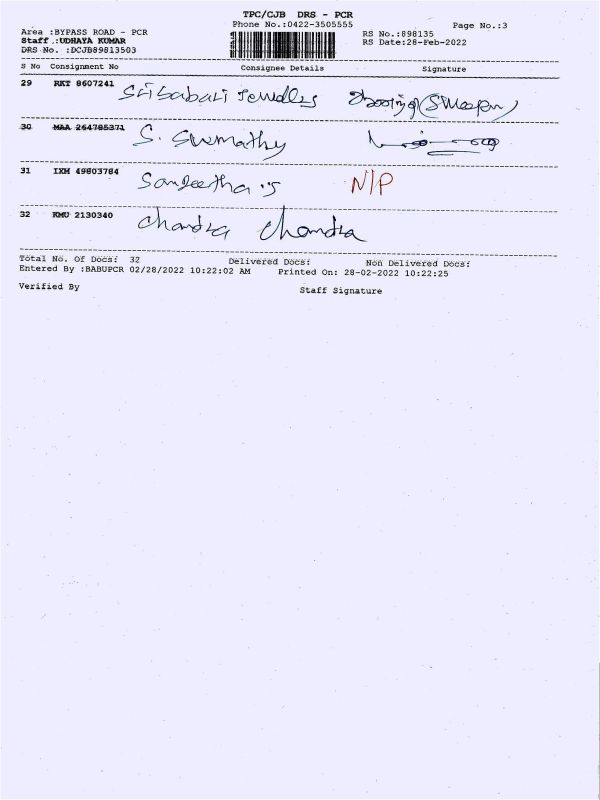 TPC/CJB DRS - PCR
Phone No.:0422-3505555
Page No.:3
Area :BYPASS ROAD - PCR
RS No.:898135
Staff :UDHAYA KUMAR
RS Date:28-Feb-2022
DRS No. :DCJB89813503
S No Consignment No Consignee Details Signature
29 RKT 8607241 (Sweeper)
30 MAA 264785371 S. Sumathy
31 IXM 49803784 Sangeetha .S N/P
32 KMU 2130340 Chandra Chandra
Total No. Of Docs: 32 Delivered Docs: Non Delivered Docs:
Entered By :BABUPCR 02/28/2022 10:22:02 AM Printed On: 28-02-2022 10:22:25
Verified By Staff Signature